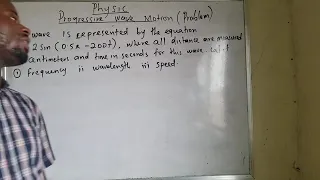 Physic
Progressive Wave Motion (Problem)
wave is represented by the equation
2 sin (0.5x - 200t), where all distance are measured
centimeters and time in seconds for this wave
① Frequency ii wavelength iii speed.